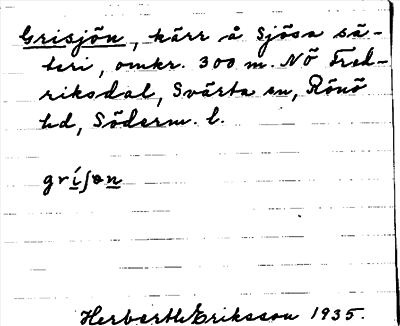 Grisjön, kärr å Sjösa sä-
teri, omkr. 300 m. NÖ Fred-
riksdal, Svärta sn, Rönö
hd, Söderm. l.
gríſɵn
Herbert Eriksson 1935.